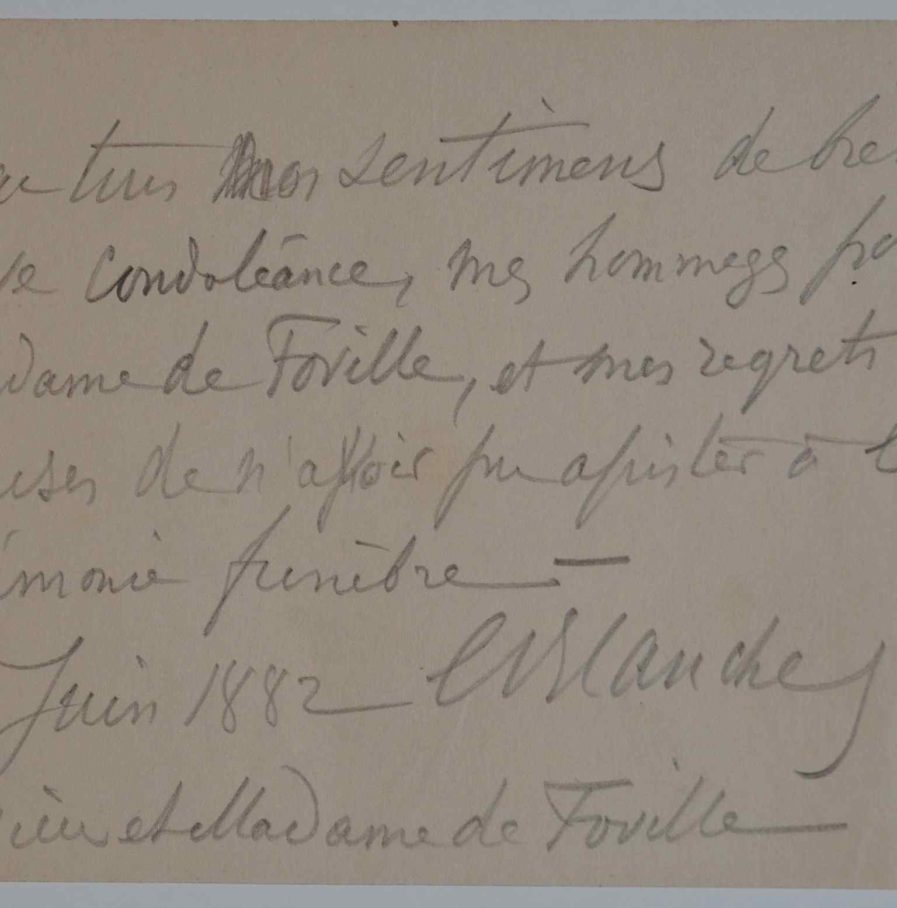 tous mes sentimens de
condoléance, mes hommages
dame de Foville, et mes regrets
de n'avoir pu assister à l
émonie funèbre —
Juin 1882 Blanche
et Madame de Foville